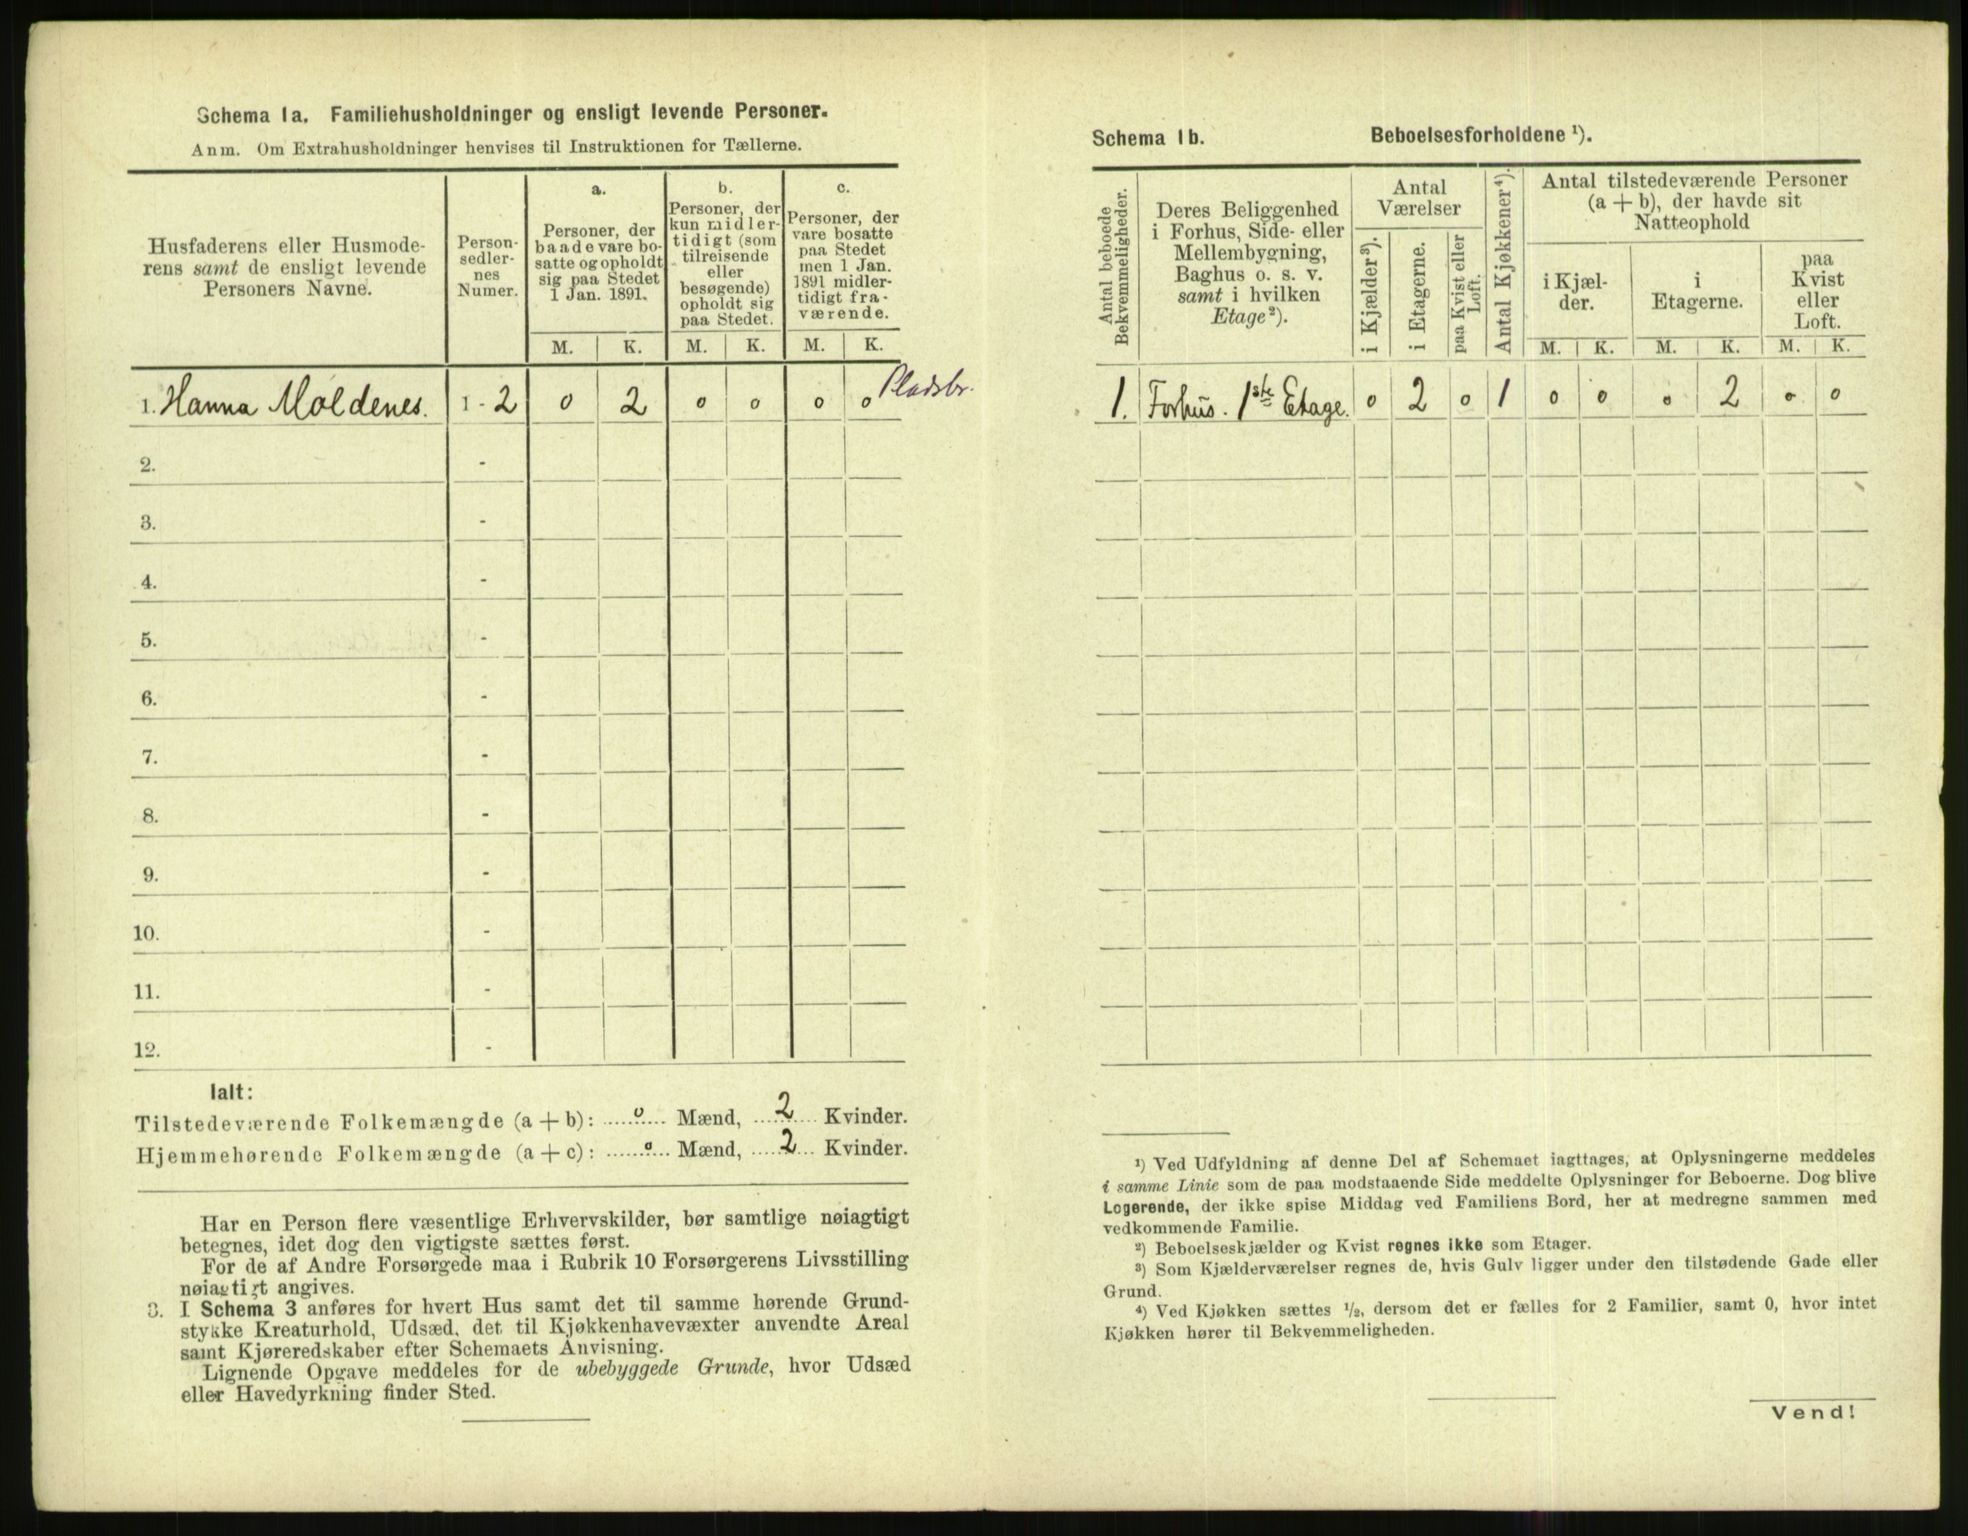 Schema 1a. Familiehusholdninger og ensligt levende Personer.
Anm. Om Extrahusholdninger henvises til Instruktionen for Tællerne.
Husfaderens eller Husmoderens samt de ensligt levende Personers Navne.
Person-
sedler-
nes
Numer.
a.
Personer, der
baade vare bo-
satte og opholdt
sig paa Stedet
1 Jan. 1891.
b.
Personer, der
kun midler-
tidigt (som
tilreisende
eller
besøgende)
opholdt sig
paa Stedet.
c.
Personer, der
vare bosatte
paa Stedet
men 1 Jan.
1891 midler-
tidigt fra-
værende.
M. K. M. K. M. K.
1. Hanna Moldenes. 1 - 2 0 2 0 0 0 0 Pladsbr.
2. -
3. -
4. -
5. -
6. -
7. -
8. -
9. -
10. -
11. -
12. -
Ialt:
Tilstedeværende Folkemængde (a + b): 0 Mænd, 2 Kvinder.
Hjemmehørende Folkemængde (a + c): 0 Mænd, 2 Kvinder.
Har en Person flere væsentlige Erhvervskilder, bør samtlige nøiagtigt
betegnes, idet dog den vigtigste sættes først.
For de af Andre Forsørgede maa i Rubrik 10 Forsørgerens Livsstilling
nøiagtigt angives.
3. I Schema 3 anføres for hvert Hus samt det til samme hørende Grund-
stykke Kreaturhold, Udsæd, det til Kjøkkenhavevæxter anvendte Areal
samt Kjøreredskaber efter Schemaets Anvisning.
Lignende Opgave meddeles for de ubebyggede Grunde, hvor Udsæd
eller Havedyrkning finder Sted.
Schema 1b. Beboelsesforholdene ¹).
Antal beboede
Bekvemmeligheder.
Deres Beliggenhed
i Forhus, Side- eller
Mellembygning,
Baghus o. s. v.
samt i hvilken
Etage²).
Antal
Værelser
i Kjælder³).
i Etagerne.
paa Kvist eller
Loft.
Antal Kjøkkener⁴).
Antal tilstedeværende Personer
(a + b), der havde sit
Natteophold
i Kjæl-
der.
i
Etagerne.
paa
Kvist
eller
Loft.
M. K. M. K. M. K.
1. Forhus. 1ste Etage. 0 2 0 1 0 0 0 2 0 0
¹) Ved Udfyldning af denne Del af Schemaet iagttages, at Oplysningerne meddeles
i samme Linie som de paa modstaaende Side meddelte Oplysninger for Beboerne. Dog blive
Logerende, der ikke spise Middag ved Familiens Bord, her at medregne sammen med
vedkommende Familie.
²) Beboelseskjælder og Kvist regnes ikke som Etager.
³) Som Kjælderværelser regnes de, hvis Gulv ligger under den tilstødende Gade eller
Grund.
⁴) Ved Kjøkken sættes ½, dersom det er fælles for 2 Familier, samt 0, hvor intet
Kjøkken hører til Bekvemmeligheden.
Vend!